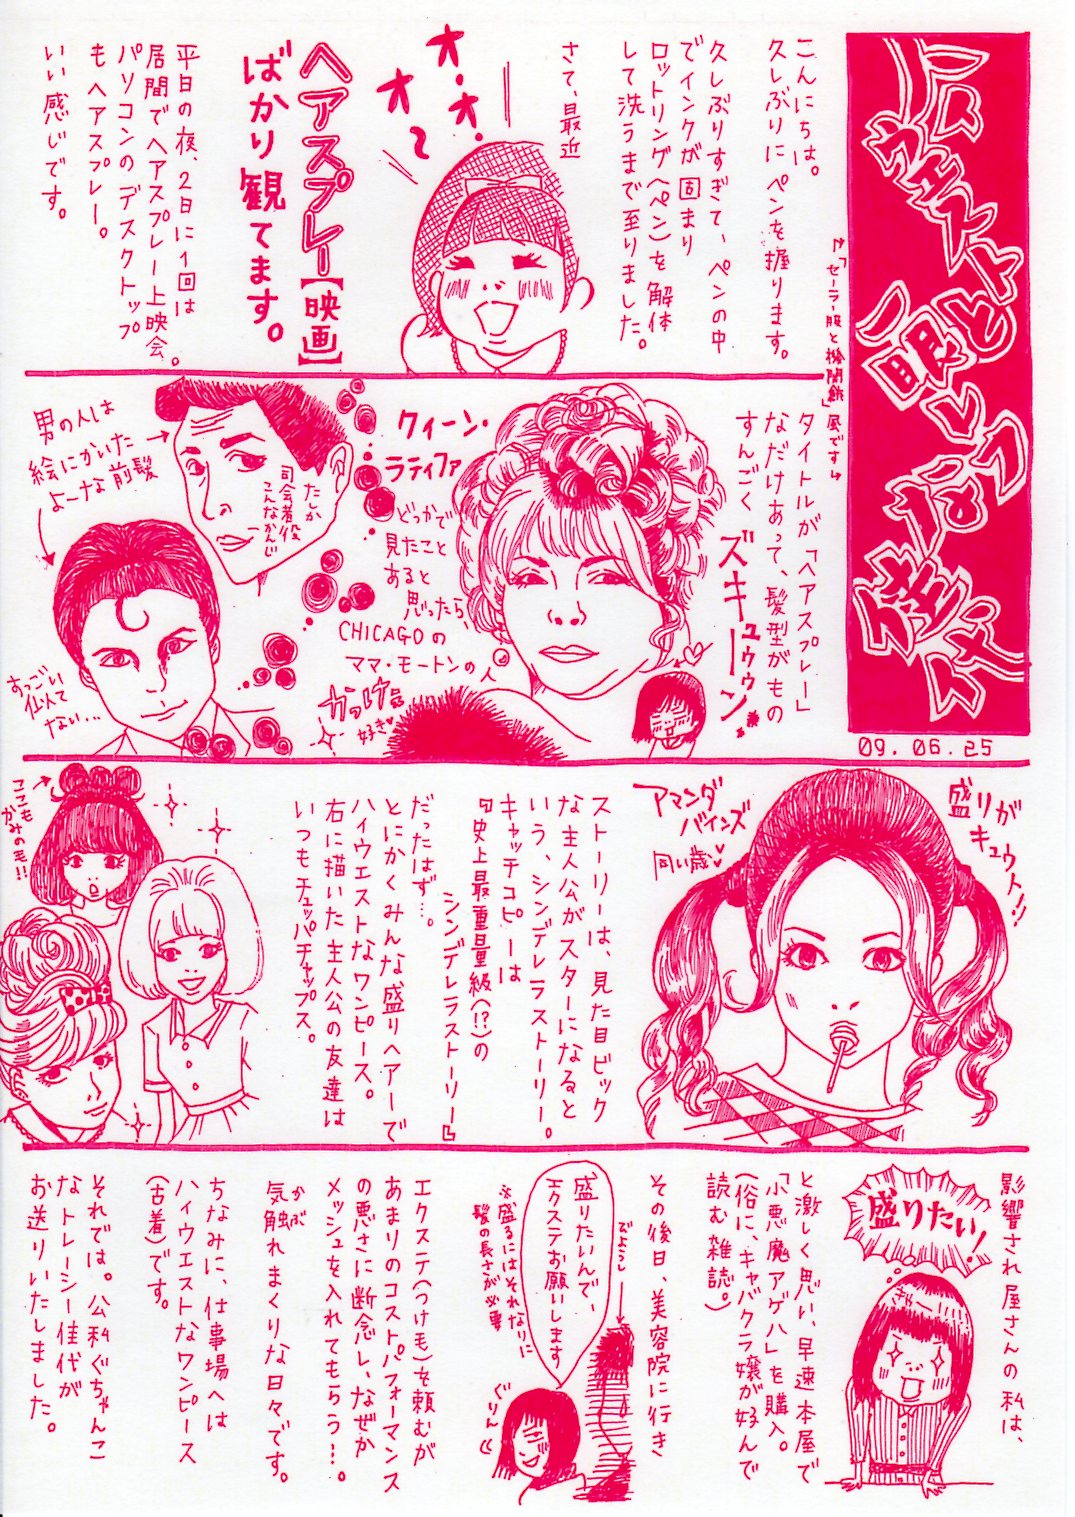 ハイウエストと
↑「セーラー服と機関銃」風です↓
09.06.25
こんにちは。
久しぶりにペンを握ります。
久しぶりすぎて、ペンの中
でインクが固まり
ロットリング(ペン)を解体
して洗うまで至りました。
さて、最近
オ・オ・オ〜
ヘアスプレー【映画】
ばかり観てます。
平日の夜、2日に1回は
居間でヘアスプレー上映会。
パソコンのデスクトップ
もヘアスプレー。
いい感じです。
タイトルが「ヘアスプレー」
なだけあって、髪型がもの
すんごく
ズキューゥゥン!!
クィーン・
ラティファ
どっかで
見たこと
あると
思ったら、
CHICAGOの
ママ・モートンの人
好き♥
たしか
司会者役
こんなかんじ
男の人は
絵にかいた
よーな前髪
すっごい
似て
ない…
盛りが
キュウト!!
アマンダ
バインズ
同い歳♥
ストーリーは、見た目ビック
な主人公がスターになると
いう、シンデレラストーリー。
キャッチコピーは
『史上最重量級(!?)の
シンデレラストーリー』
だったはず…。
とにかくみんな盛りヘアーで
ハイウエストなワンピース。
右に描いた主人公の友達は
いつもチュッパチャップス。
ココも
かみの毛!!
影響され屋さんの私は、
盛りたい!
と激しく思い、早速本屋で
「小悪魔アゲハ」を購入。
(俗に、キャバクラ嬢が好んで
読む雑誌。)
その後日、美容院に行き
びようし
盛りたいんで、
エクステお願いします
※盛るにはそれなりに
髪の長さが必要
ぐりん
エクステ(つけ毛)を頼むが
あまりのコストパフォーマンス
の悪さに断念し、なぜか
メッシュを入れてもらう…。
気触れまくりな日々です。
かぶ
ちなみに、仕事場へは
ハイウエストなワンピース
(古着)です。
それでは。公私ぐちゃんこ
なトレーシー佳代が
お送りいたしました。